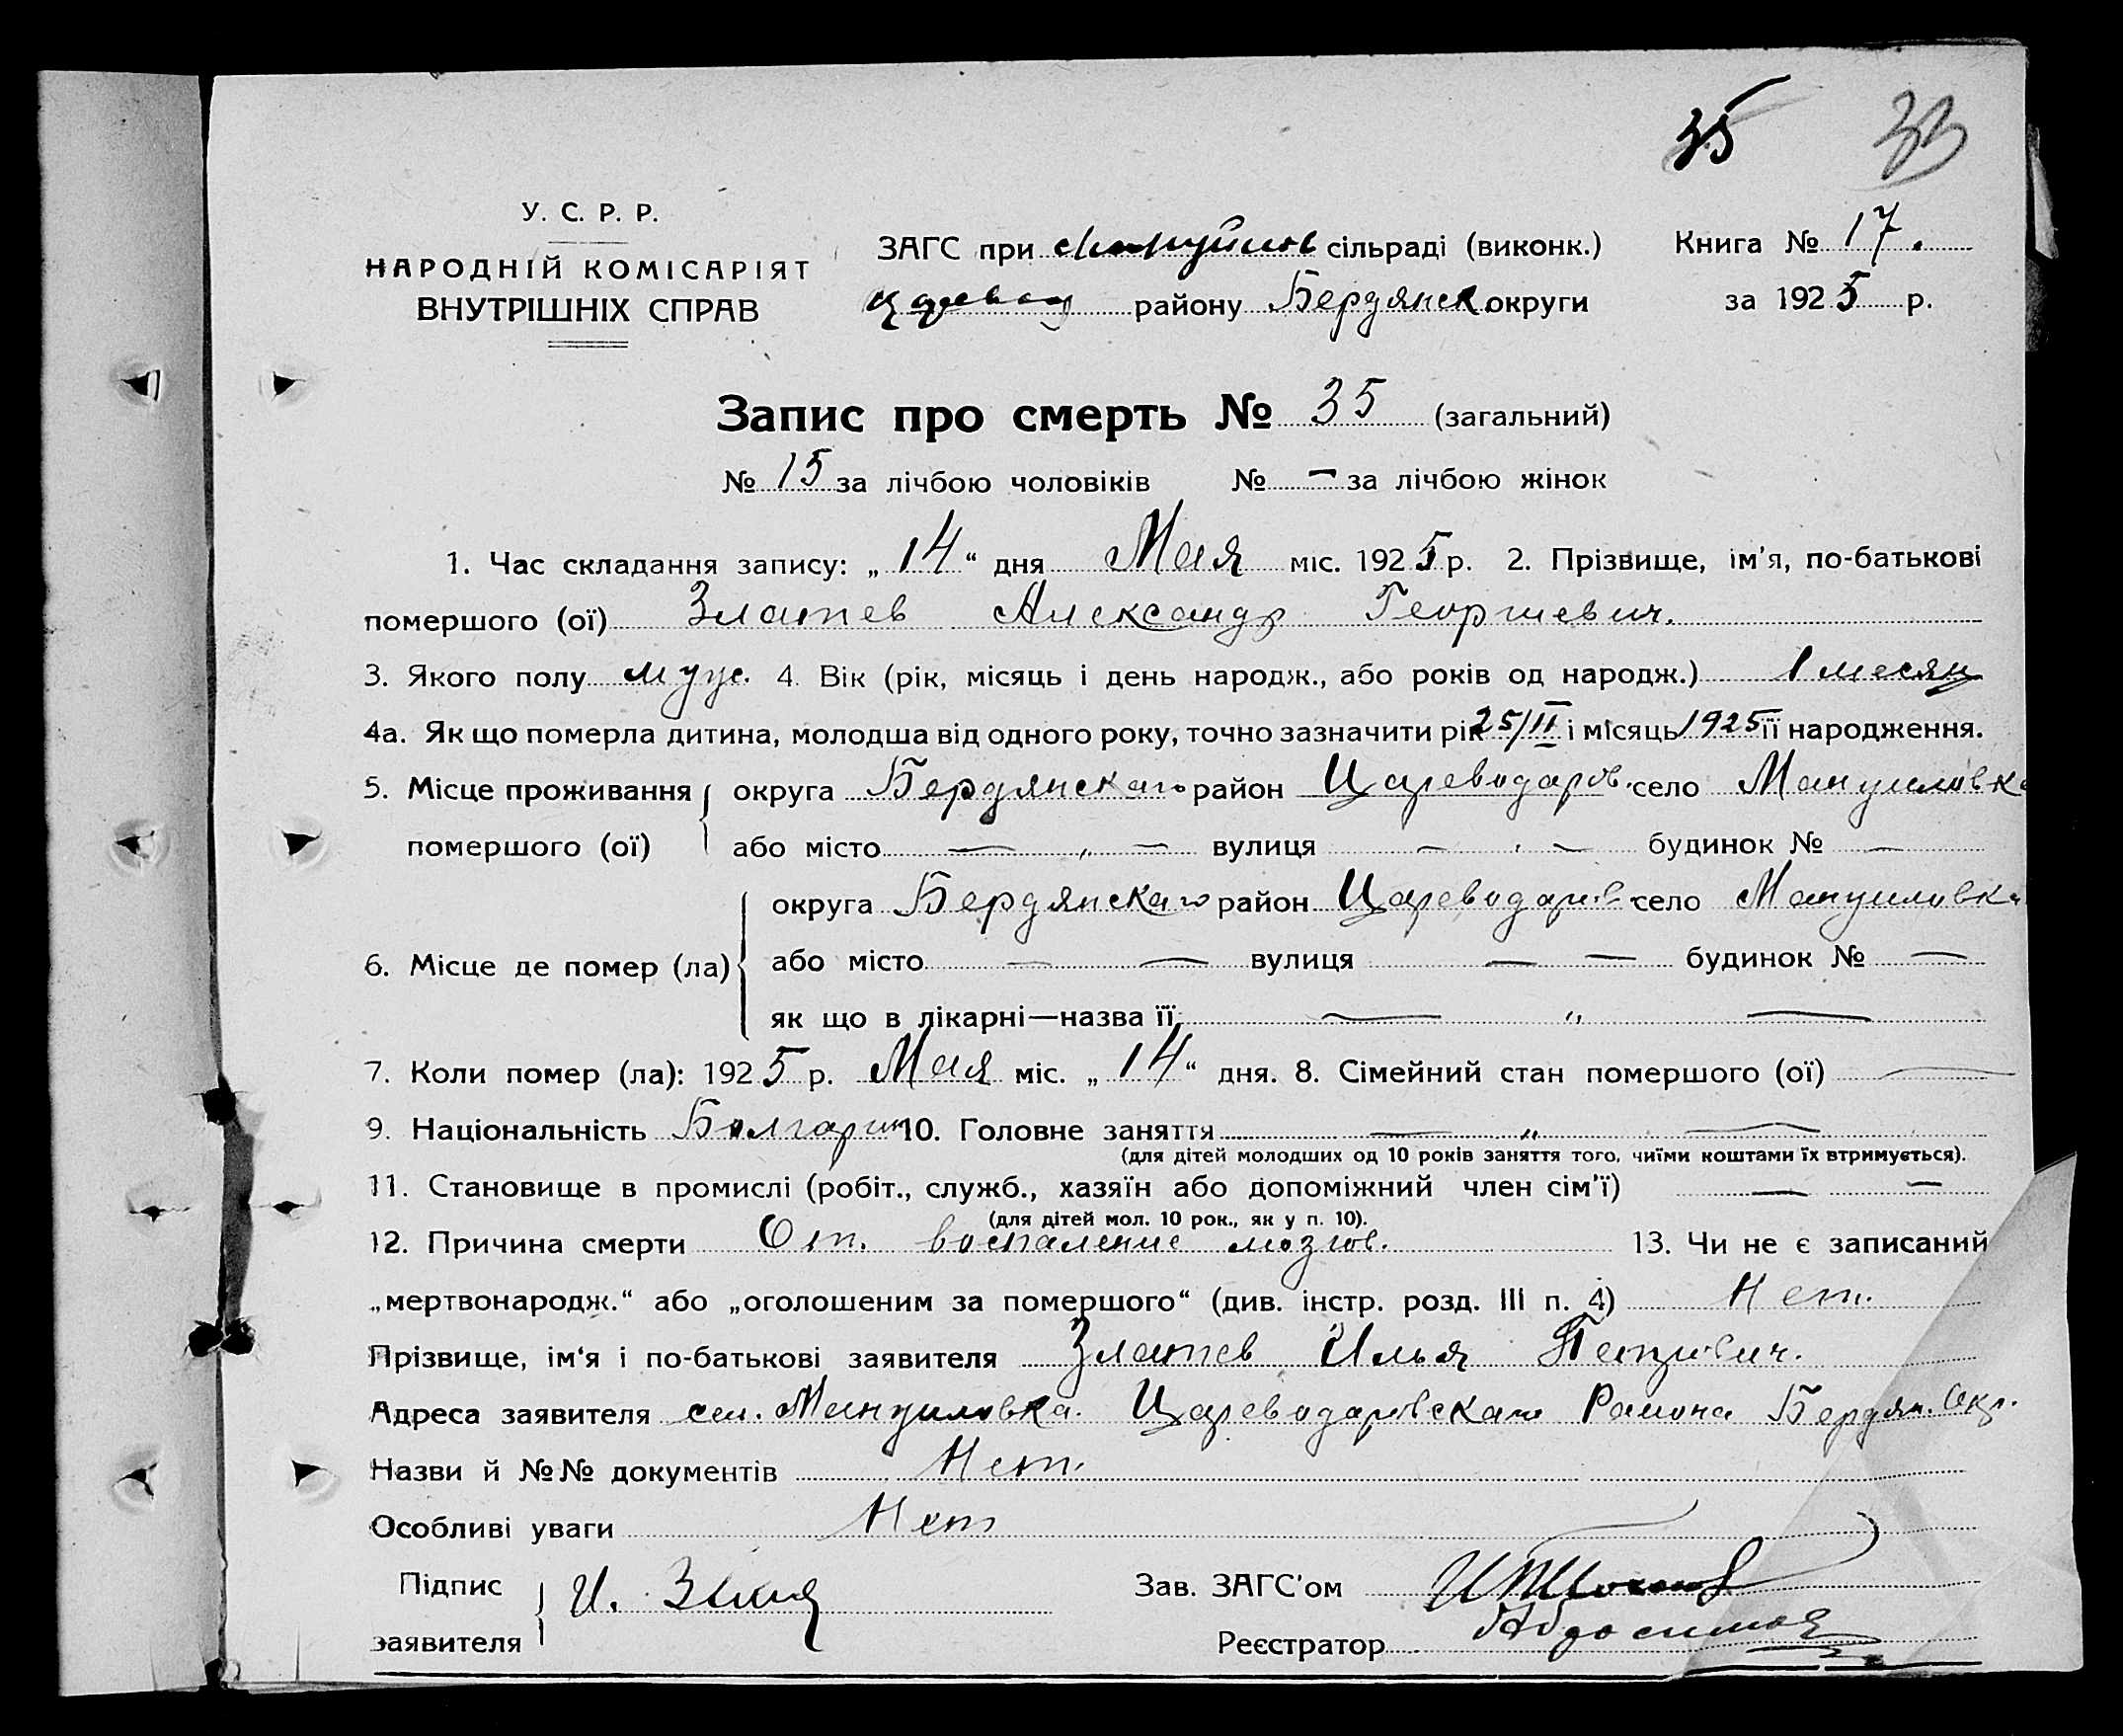 35 33
У. С. Р. Р.
НАРОДНІЙ КОМІСАРІЯТ
ВНУТРІШНІХ СПРАВ
ЗАГС при сільраді (виконк.) Книга № 17.
району Бердянск округи за 1925 р.
Запис про смерть № 35 (загальний)
№ 15 за лічбою чоловіків № — за лічбою жінок
1. Час складання запису: „14“ дня Мая міс. 1925 р. 2. Прізвище, ім'я, по-батькові
помершого (ої) Златев Александр Георгиевич.
3. Якого полу муж. 4. Вік (рік, місяць і день народж., або років од народж.) 1 месяц
4а. Як що померла дитина, молодша від одного року, точно зазначити рік 25/II і місяць 1925 її народження.
5. Місце проживання округа Бердянскаго район Цареводаров. село Мануиловка
помершого (ої) або місто — „ — вулиця — „ — будинок № —
округа Бердянскаго район Цареводаров село Мануиловка
6. Місце де помер (ла) або місто — — вулиця — — будинок № —
як що в лікарні—назва її — „ —
7. Коли помер (ла): 1925 р. Мая міс. „14“ дня. 8. Сімейний стан помершого (ої) —
9. Національність Болгарин 10. Головне заняття — „ —
(для дітей молодших од 10 років заняття того, чиїми коштами їх втримується).
11. Становище в промислі (робіт., служб., хазяїн або допоміжний член сім'ї) — —
(для дітей мол. 10 рок., як у п. 10).
12. Причина смерти От. воспаление мозгов. 13. Чи не є записаний
„мертвонародж.“ або „оголошеним за помершого“ (див. інстр. розд. III п. 4) Нет.
Прізвище, ім'я і по-батькові заявителя Златев Илья Петрович.
Адреса заявителя сел. Мануиловка. Цареводаровскаго Района Бердян. Окр.
Назви й №№ документів Нет.
Особливі уваги Нет
Підпис
заявителя И.
Зав. ЗАГС'ом
Реєстратор